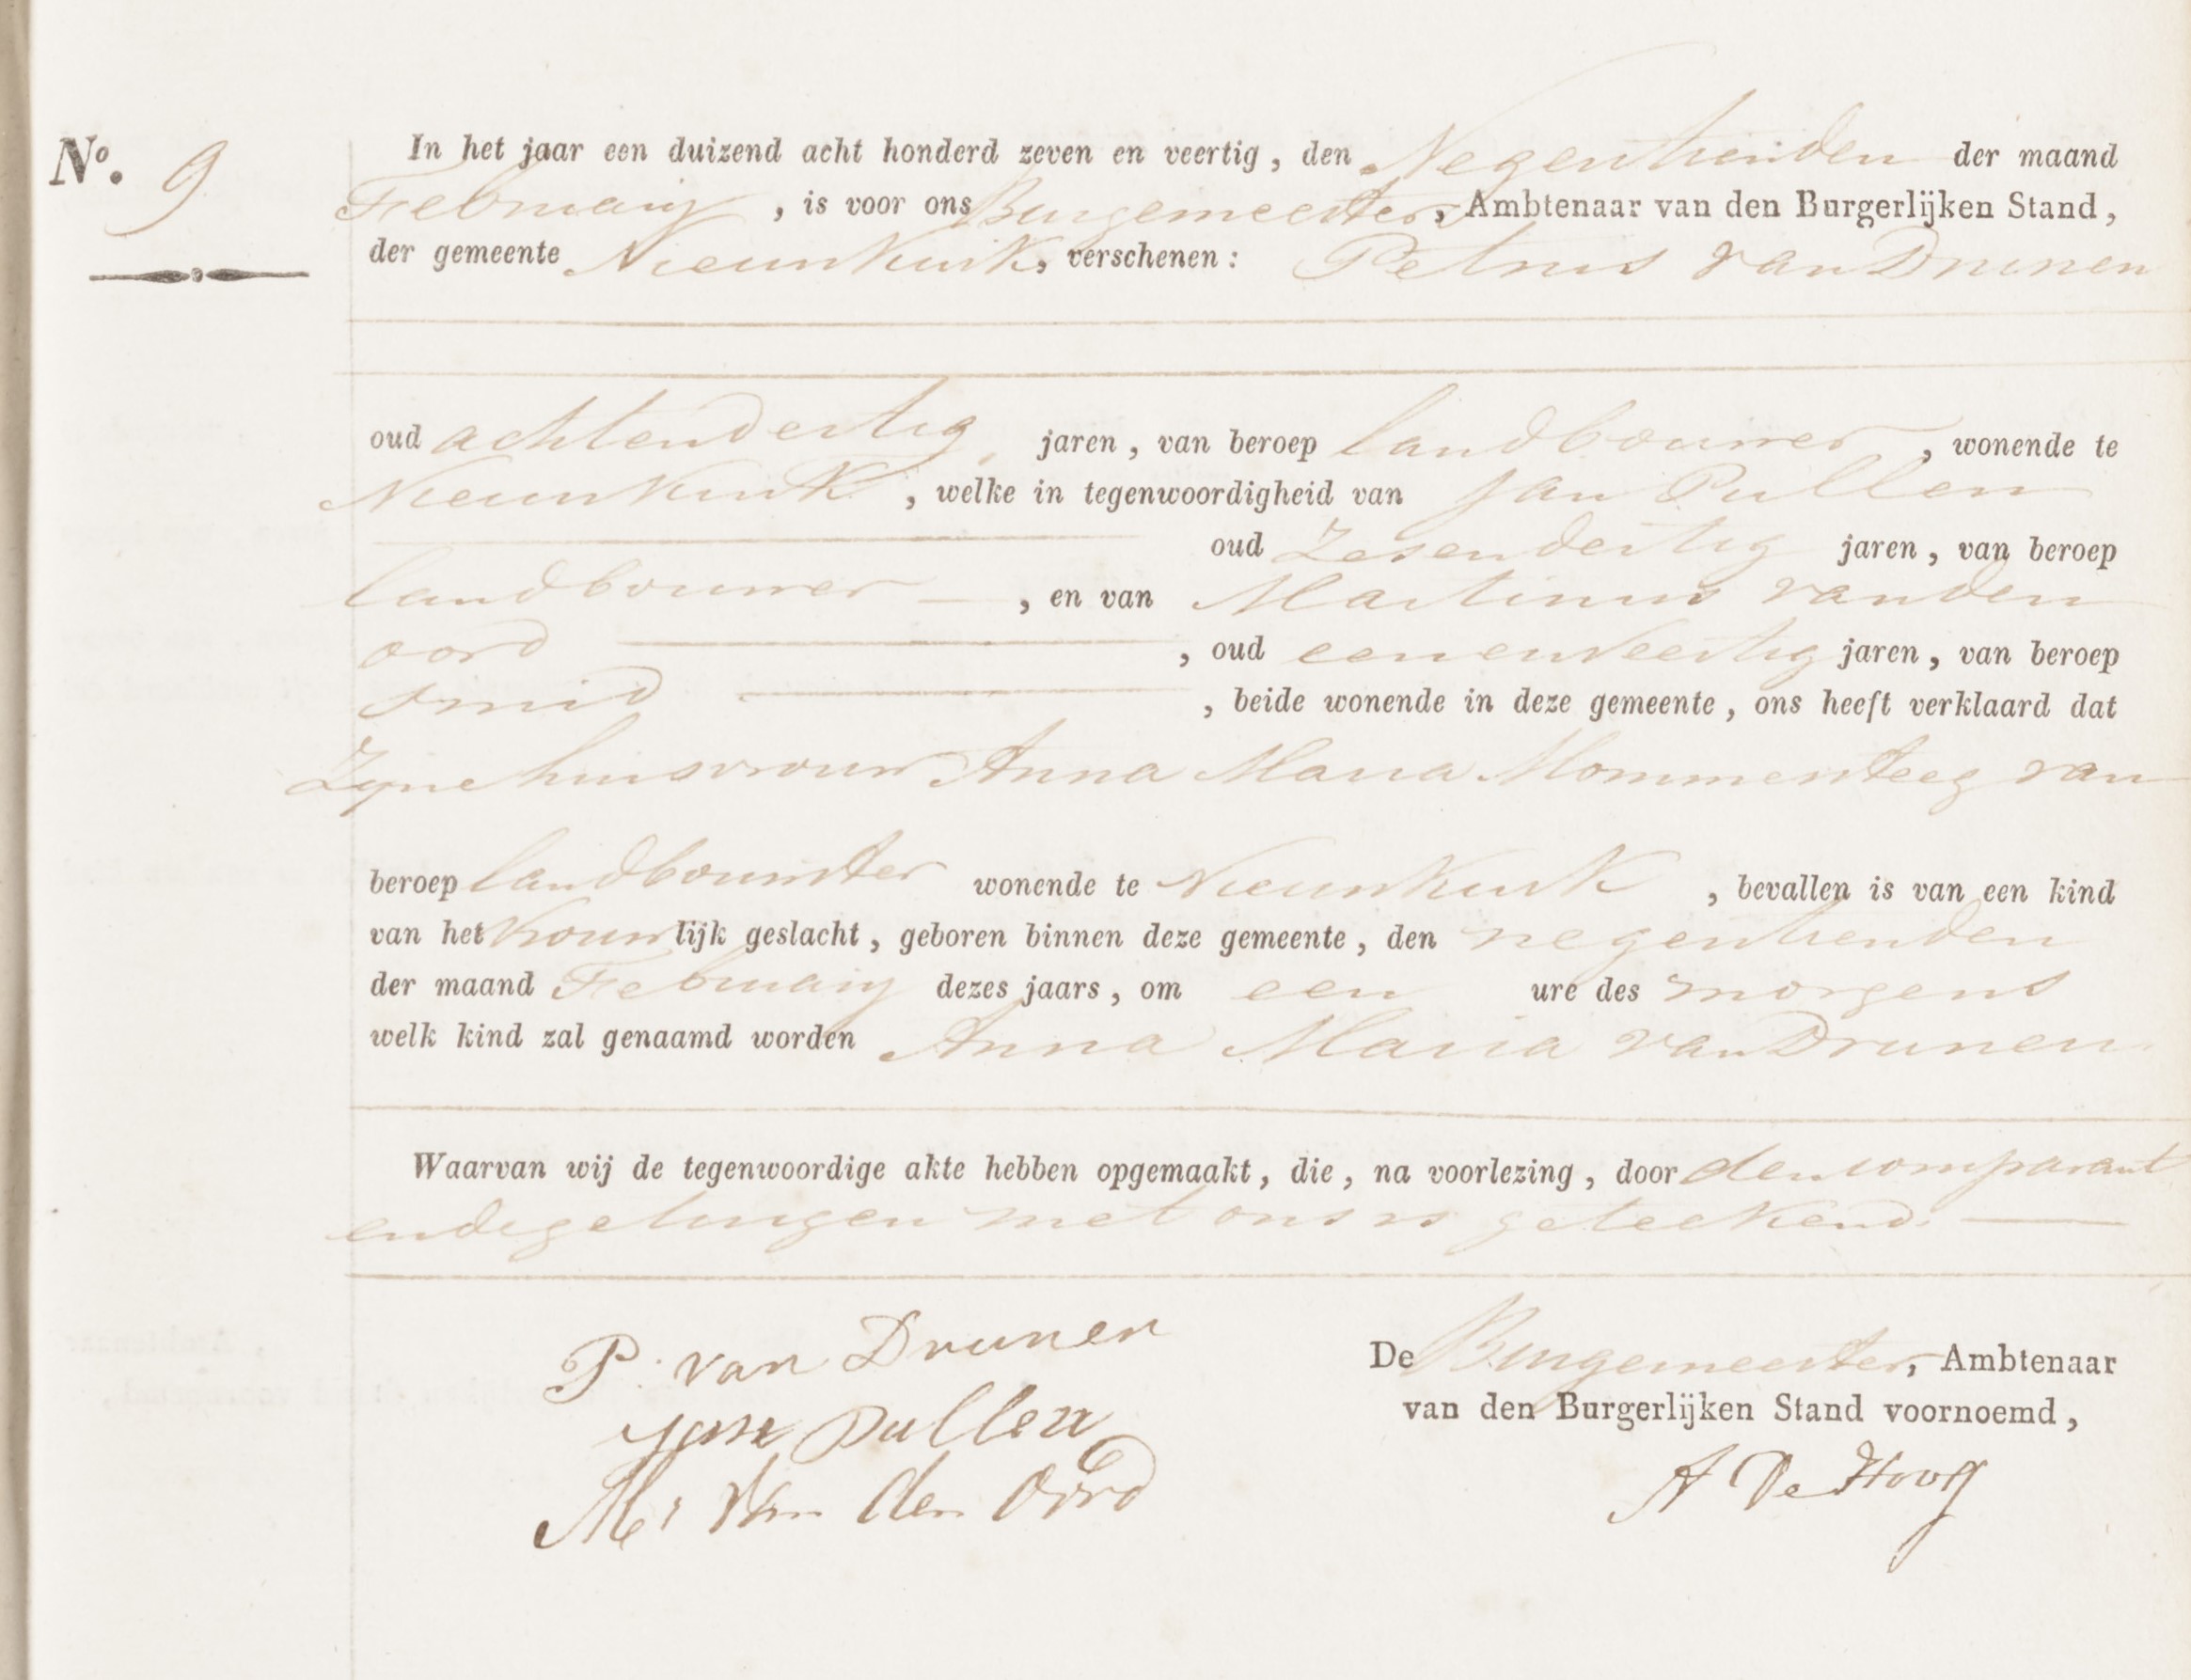 No. 9
In het jaar een duizend acht honderd zeven en veertig, den Negentienden der maand
Februarij, is voor ons Burgemeester, Ambtenaar van den Burgerlijken Stand,
der gemeente Nieuwkuik, verschenen: Petrus van Drunen
oud achtendertig jaren, van beroep landbouwer, wonende te
Nieuwkuik, welke in tegenwoordigheid van Jan Pullen
oud Zesendertig jaren, van beroep
landbouwer, en van Martinus vanden
oord, oud eenenveertig jaren, van beroep
smid, beide wonende in deze gemeente, ons heeft verklaard dat
Zyne huisvrouw Anna Maria Mommersteeg van
beroep landbouwster wonende te Nieuwkuik, bevallen is van een kind
van het vrouwlijk geslacht, geboren binnen deze gemeente, den negentienden
der maand Februarij dezes jaars, om een ure des morgens
welk kind zal genaamd worden Anna Maria van Drunen
Waarvan wij de tegenwoordige akte hebben opgemaakt, die, na voorlezing, door den comparant
en de getuigen met ons is geteekend.
P. van Drunen
De Burgemeester, Ambtenaar
van den Burgerlijken Stand voornoemd,
Jan Pullen
M. Van den Oord
A De Hooff